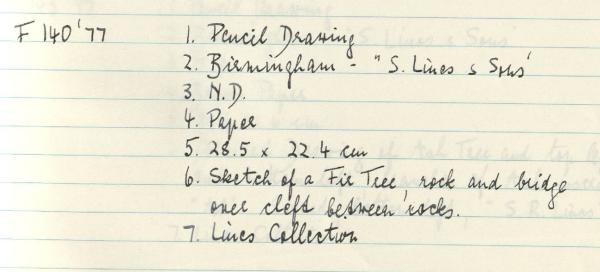 F 140'77
1. Pencil Drawing
2. Birmingham - "S. Lines & Sons'
3. N.D.
4. Paper
5. 28.5 x 22.4 cm
6. Sketch of a Fir Tree, rock and bridge
over cleft between rocks.
7. Lines Collection